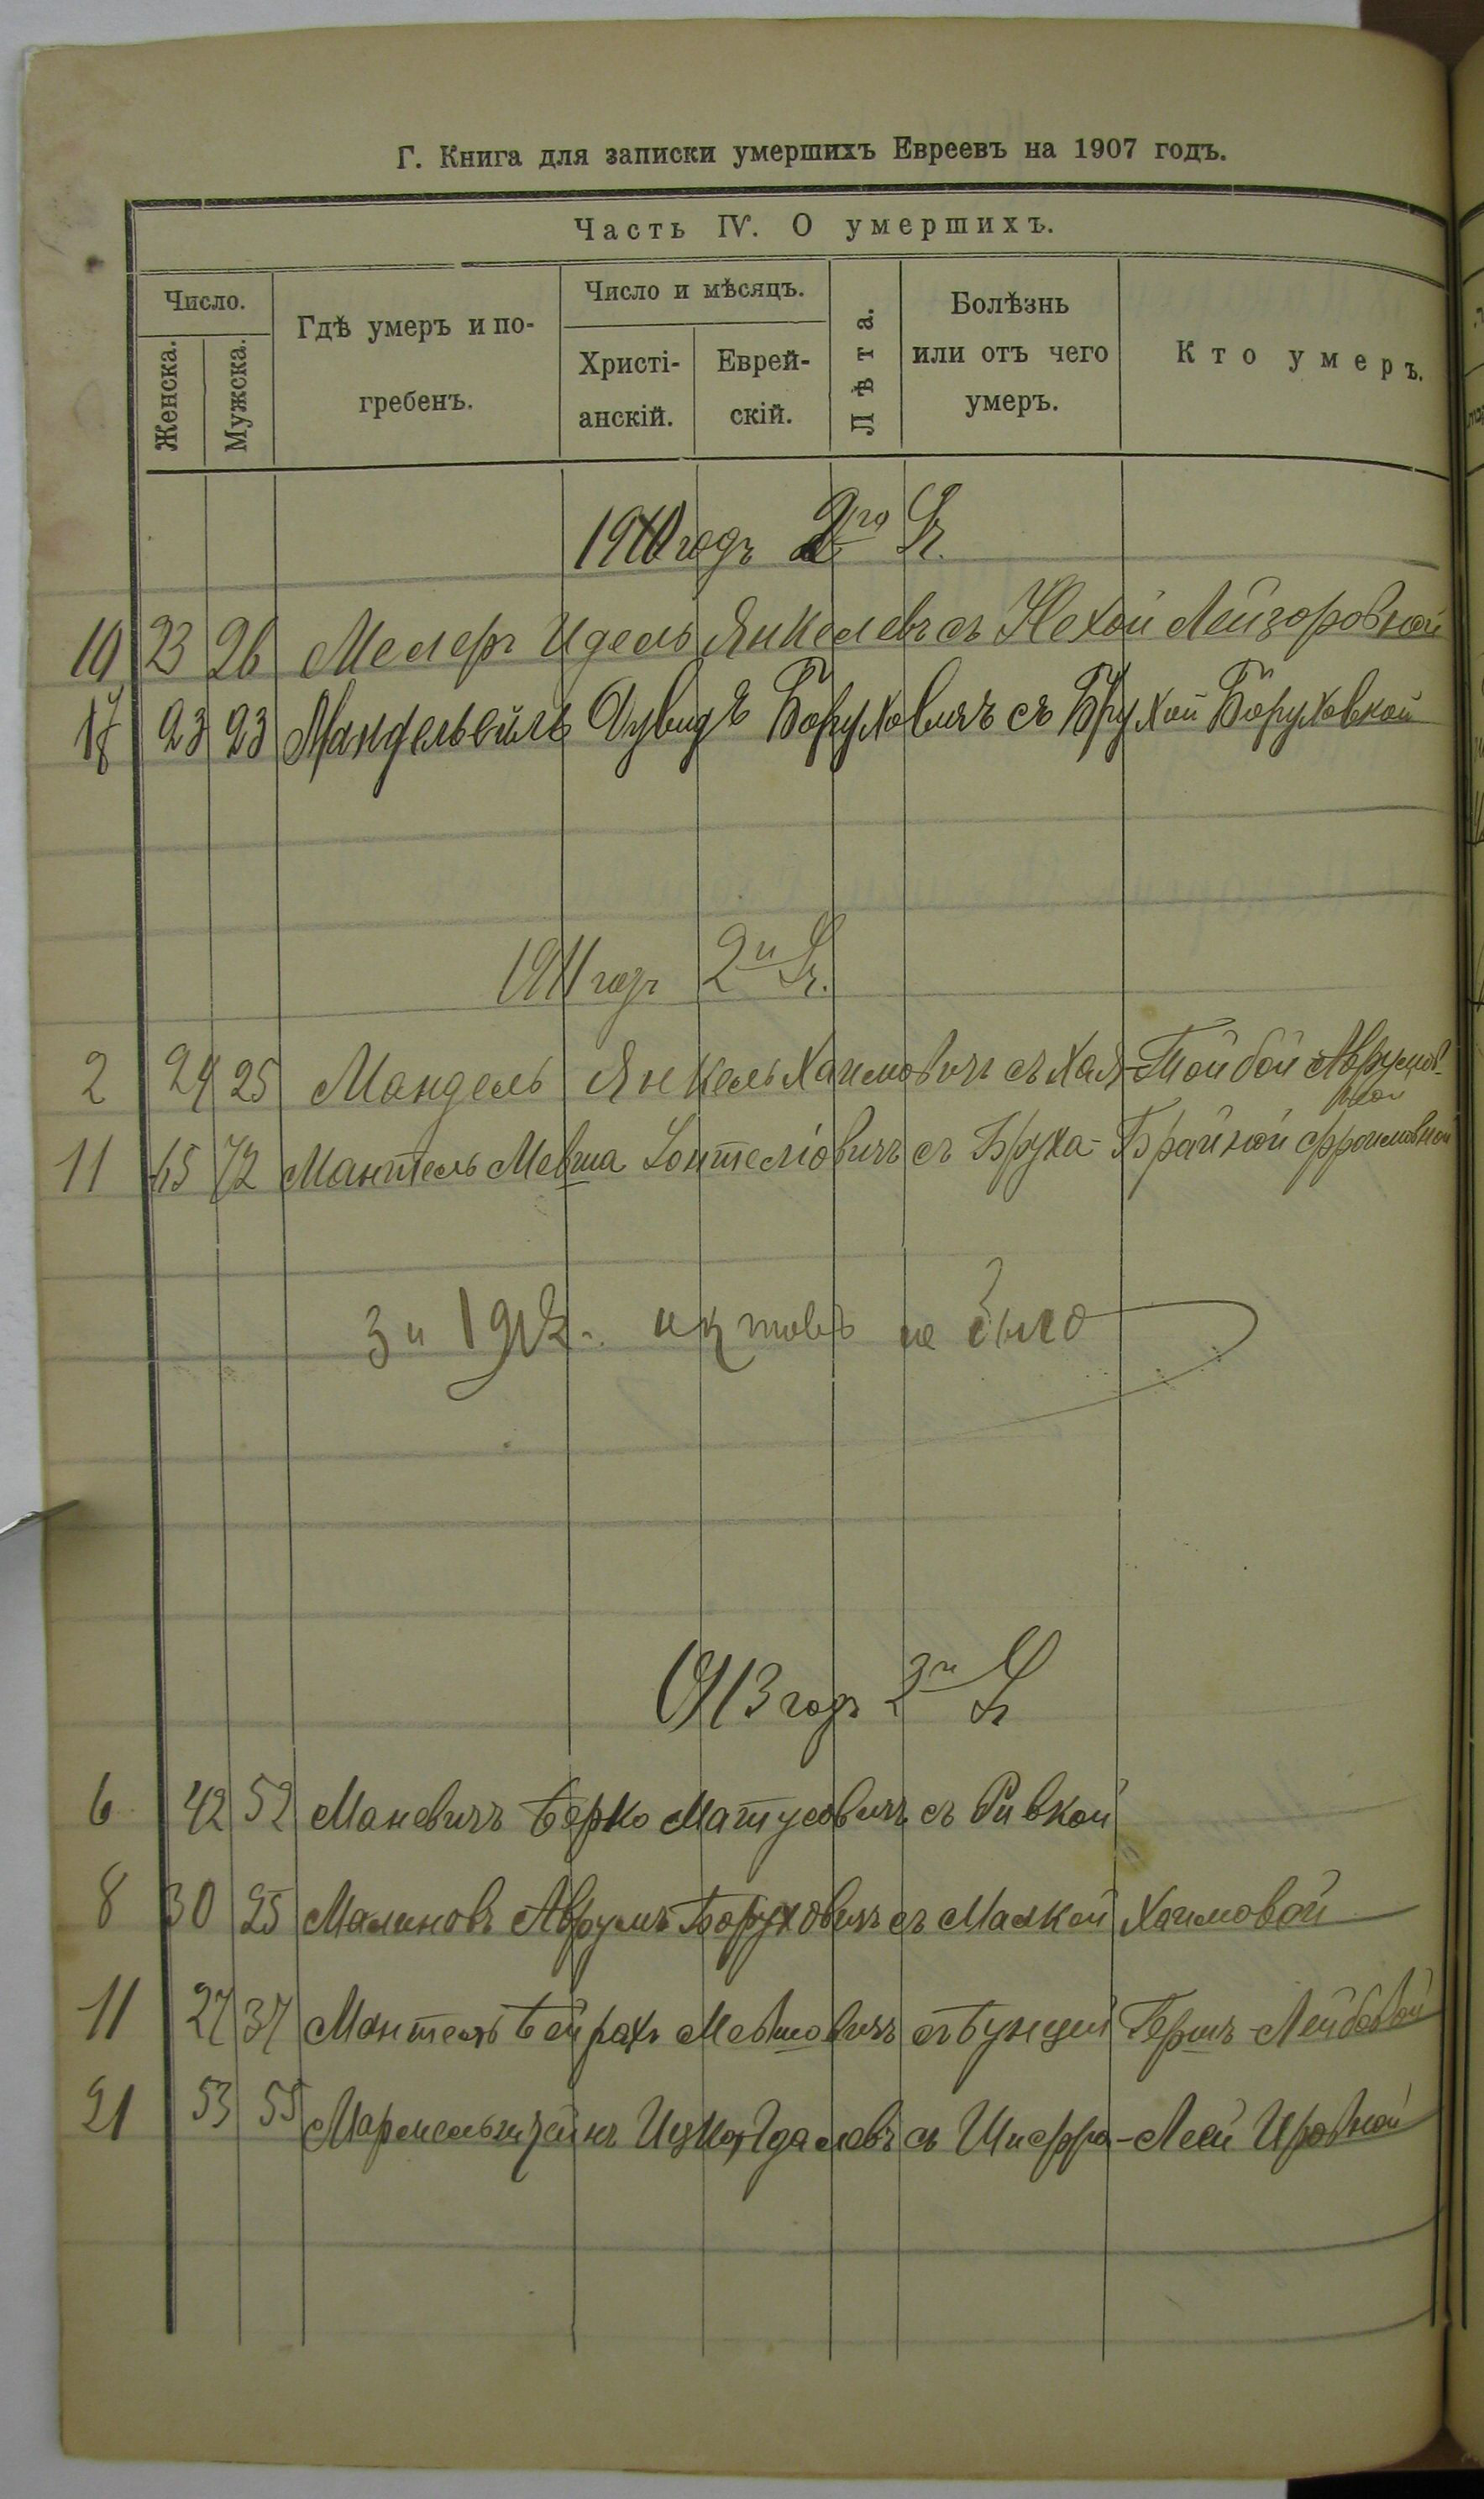 Г. Книга для записки умершихъ Евреевъ на 1907 годъ.
Часть IV. О умершихъ.
Число.
Женска.
Мужска.
Гдѣ умеръ и по-
гребенъ.
Число и мѣсяцъ.
Христі-
анскій.
Еврей-
скій.
Лѣта.
Болѣзнь
или отъ чего
умеръ.
Кто умеръ.
1910 годъ 2го
19 23 26 Мелеръ Идель Янкелевъ съ Нехой Лейзоровной
23 23 Мандельейль Дувидъ Боруховичъ съ Брухой Боруховной
1911 годъ 2й
2 24 25 Мандель Янкель Хаимовичъ съ Хая-Тойбой Аврумов-
ной
11 65 72 Мантель Мевша съ Бруха-Брайной Фроимовной
За 1912 г. актовъ не было
1913 годъ
6 42 52 Маневичъ Берко Матусовичъ съ Ривкой
8 30 25 Малиновъ Аврумъ Боруховичъ съ Малкой Хаимовой
11 27 37 Мантель Бейрахъ Мевшовичъ съ Бунцей Гершъ-Лейбовой
21 53 55 Мармельштейнъ Ицко-Идалевъ съ Шифра-Леей Ировной